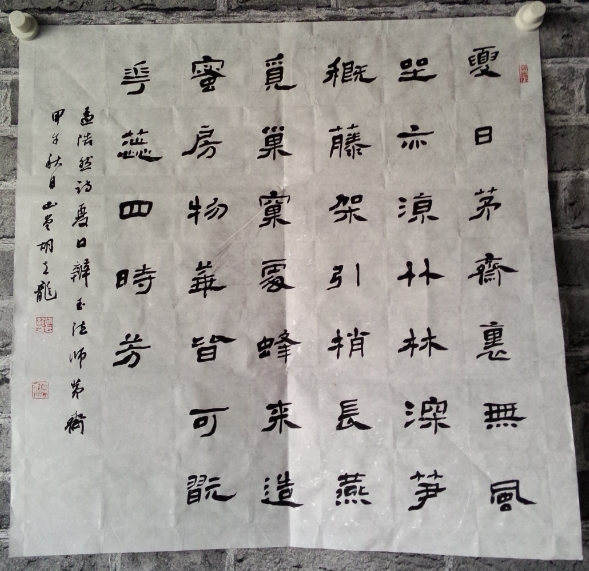 夏日茅齋裏無風
坐亦涼竹林深笋
概藤架引梢長燕
覓巢窠處蜂来造
蜜房物華皆可翫
花蕊四時芳
孟浩然詩夏日辯玉法師茅齋
甲午秋月山堂胡文龍